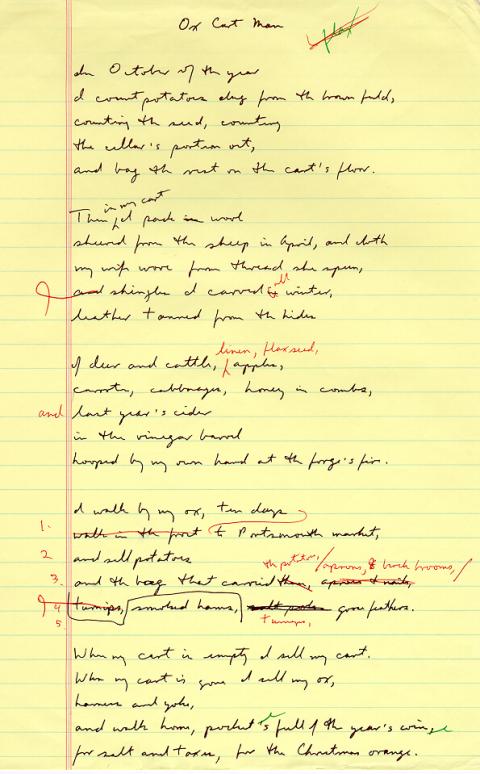 Ox Cart Man
flax
In October of the year
I count potatoes dug from the brown field,
counting the seed, counting
the cellar's portion out,
and bag the rest on the cart's floor.
in my cart
Then I pack in wool
sheared from the sheep in April, and cloth
my wife wove from thread she spun,
all
and shingles I carved winter,
leather tanned from the hides
linen, flaxseed,
of deer and cattle, apples,
carrots, cabbages, honey in combs,
and last year's cider
in the vinegar barrel
hooped by my own hand at the forge's fire.
I walk by my ox, ten days
1. walk in the frost to Portsmouth market,
2 and sell potatoes
the potatoes / aprons, & birch brooms, /
3. and the bag that carried them,
4 turnips, smoked hams, salt pork goosefeathers.
5. turnips,
When my cart is empty I sell my cart.
When my cart is gone I sell my ox,
harness and yoke,
and walk home, pockets full of the year's coin
for salt and taxes, for the Christmas orange.